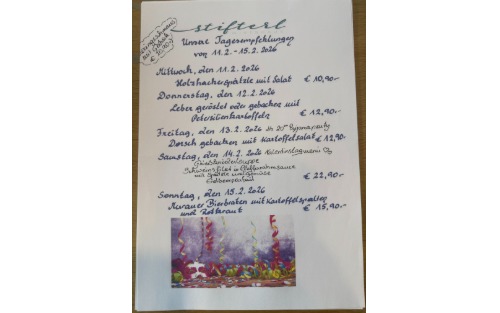 stifterl
Unsere Tagesempfehlungen
von 11.2. - 15.2.2026
Mittwoch, den 11.2.2026
Holzhackerspätzle mit Salat € 10,90.-
Donnerstag, den 12.2.2026
Leber geröstet oder gebacken mit
Petersilienkartoffeln € 12,90.-
Freitag, den 13.2.2026
Dorsch gebacken mit Kartoffelsalat € 12,90.-
Samstag, den 14.2.2026
€ 22,90.-
Sonntag, den 15.2.2026
Murauer Bierbraten mit Kartoffelspalten
und Rotkraut € 15,90.-